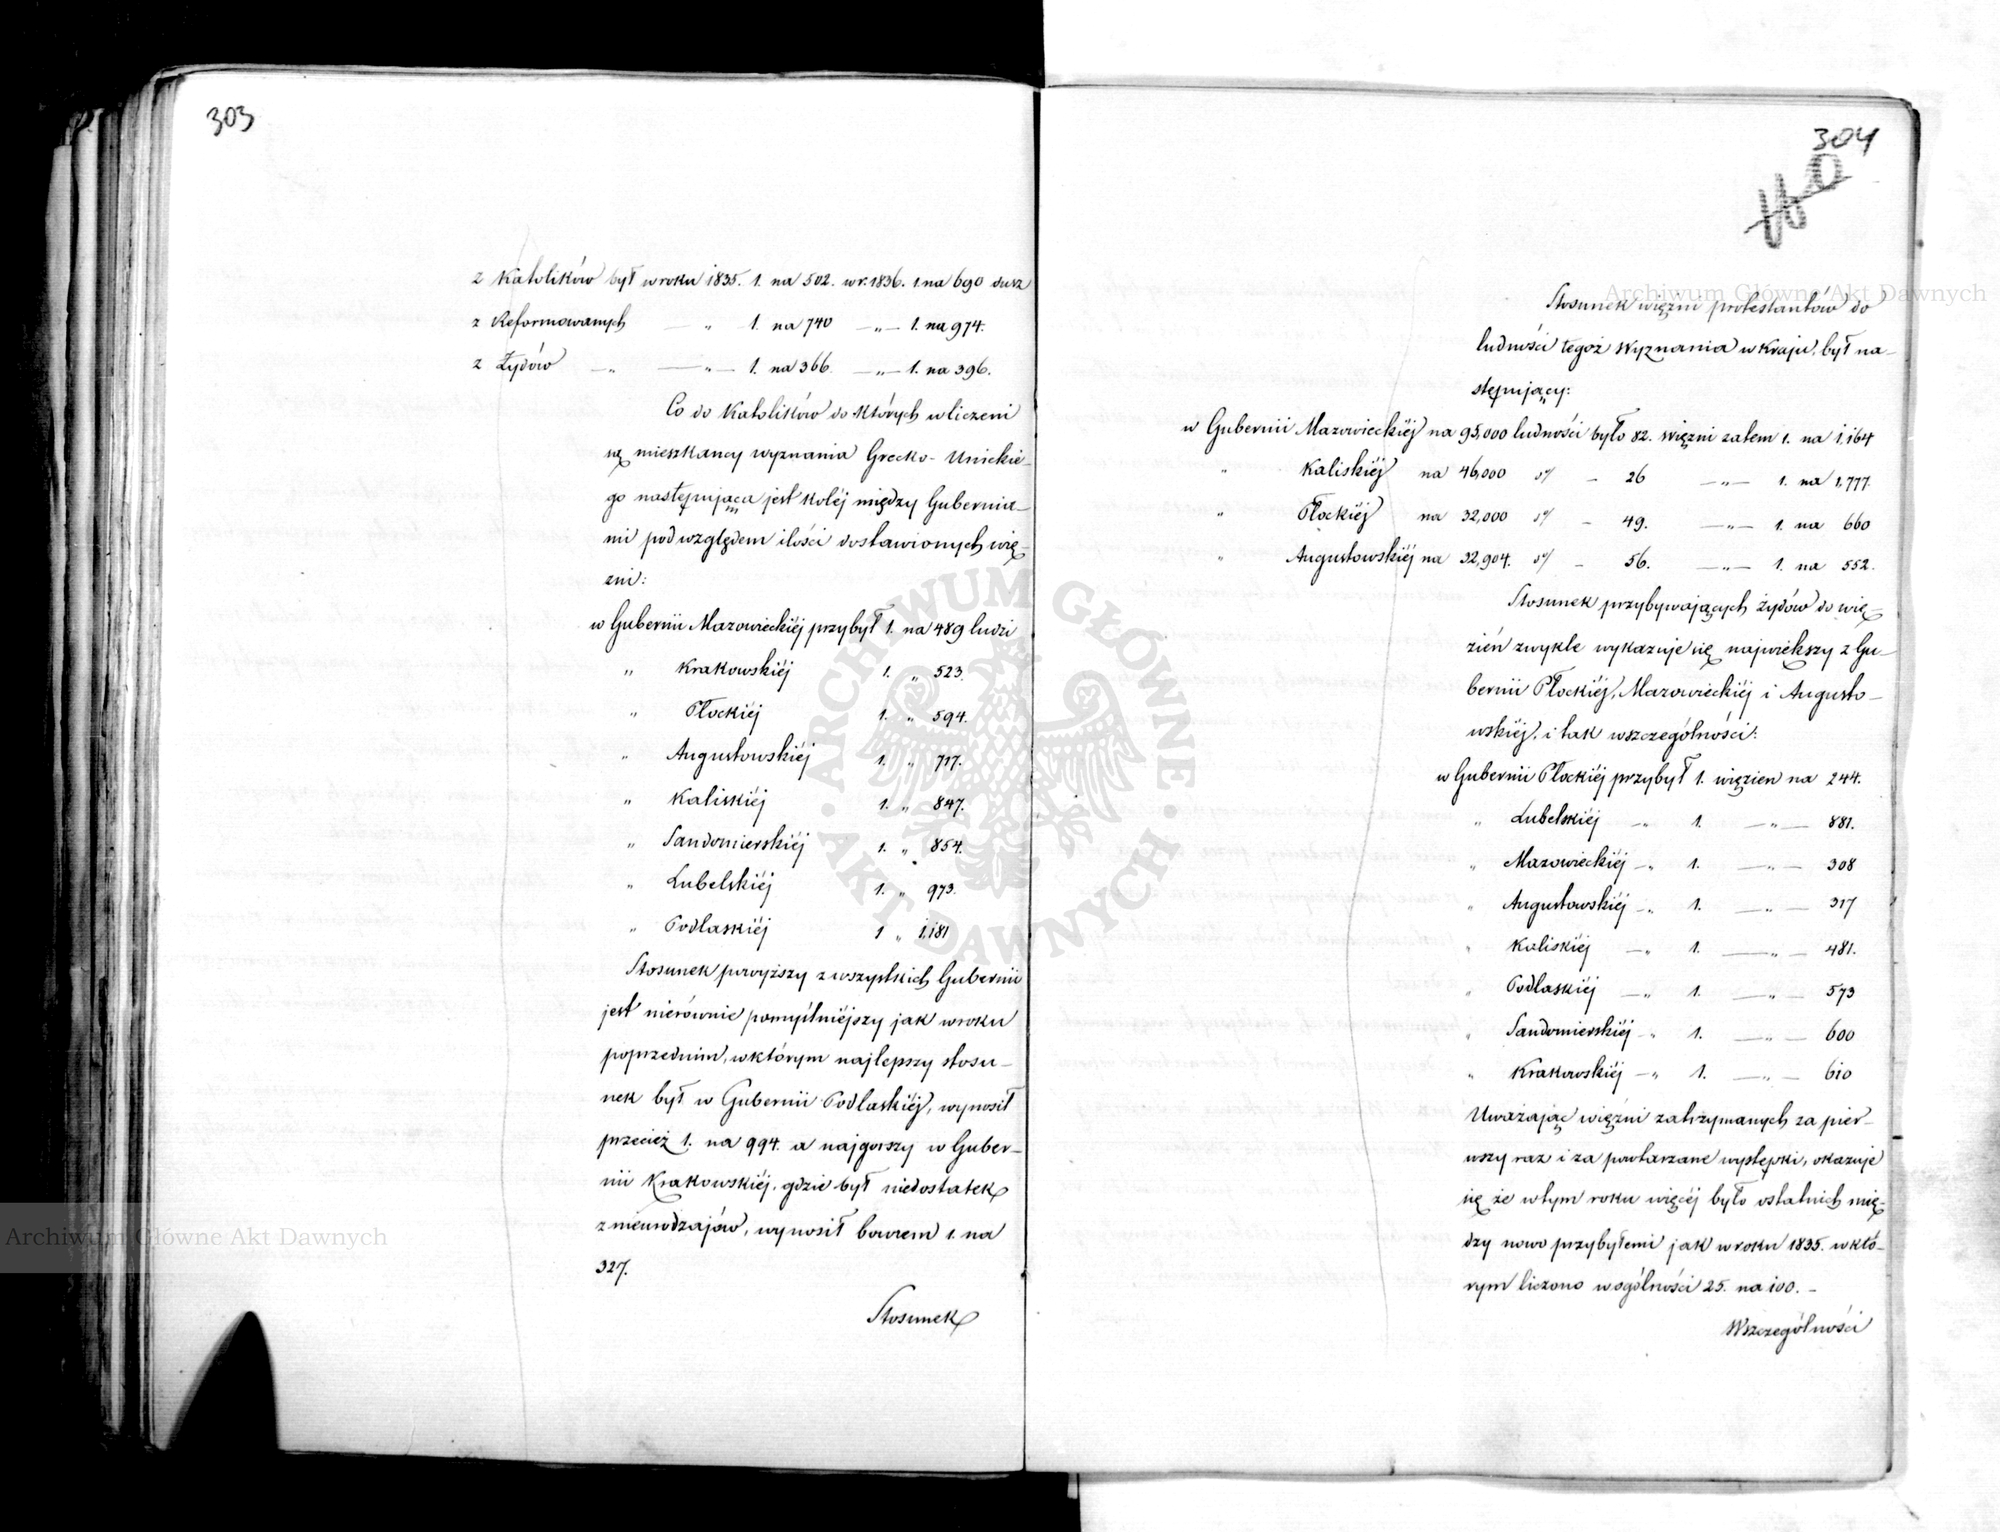 303
z Katolików był w roku 1835. 1. na 502. w r. 1836. 1. na 690 dusz
z Reformowanych — „ 1. na 740 —„— 1. na 974.
z Żydów —„ —„— 1. na 366. —„— 1. na 396.
Co do Katolików do których wliczeni
są mieszkańcy wyznania Grecko-Unickie-
go następująca jest koléj między Gubernia-
mi pod względem ilości dostawionych wię-
źni:
w Gubernii Mazowieckiéj przybył 1. na 489 ludzi
„ Krakowskiéj 1. „ 523.
„ Płockiéj 1. „ 594.
„ Augustowskiéj 1. „ 717.
„ Kaliskiéj 1. „ 847.
„ Sandomierskiéj 1. „ 854.
„ Lubelskiéj 1. „ 973.
„ Podlaskiéj 1 „ 1,181
Stosunek powyższy z wszystkich Gubernii
jest nierównie pomyślniéjszy jak w roku
poprzednim, w którym najlepszy stosu-
nek był w Gubernii Podlaskiéj, wynosił
przecież 1. na 994. a najgorszy w Guber-
nii Krakowskiéj, gdzie był niedostatek
z nieurodzajów, wynosił bowiem 1. na
327.
Stosunek
304
Stosunek więzni protestantów do
ludności tegoż Wyznania w Kraju, był na-
stępujący:
w Gubernii Mazowieckiéj na 95,000 ludności było 82. więzni zatem 1. na 1,164
„ Kaliskiéj na 46,000 „ – 26 —„— 1. na 1,777.
„ Płockiéj na 32,000 „ – 49. —„— 1. na 660
„ Augustowskiéj na 32,904. „ – 56. —„— 1. na 552.
Stosunek przybywających żydów do wię-
zień zwykle wykazuje się największy z Gu-
bernii Płockiéj, Mazowieckiéj i Augusto-
wskiéj, i tak w szczególności:
w Gubernii Płockiéj przybył 1. więzien na 244.
„ Lubelskiéj —„ 1. —„— 881.
„ Mazowieckiéj —„ 1. —„— 308
„ Augustowskiéj —„ 1. —„— 317
„ Kaliskiéj —„ 1. —„— 481.
„ Podlaskiéj —„ 1. —„— 573
„ Sandomierskiéj —„ 1. —„— 600
„ Krakowskiéj —„ 1. —„— 610
Uważając więźni zatrzymanych za pier-
wszy raz i za powtarzane występki, okazuje
się że w tym roku więcéj było ostatnich mię-
dzy nowo przybyłemi jak w roku 1835. w któ-
rym liczono w ogólności 25. na 100. –
W szczególności
Archiwum Główne Akt Dawnych
Archiwum Główne Akt Dawnych
ARCHIWUM GŁÓWNE AKT DAWNYCH